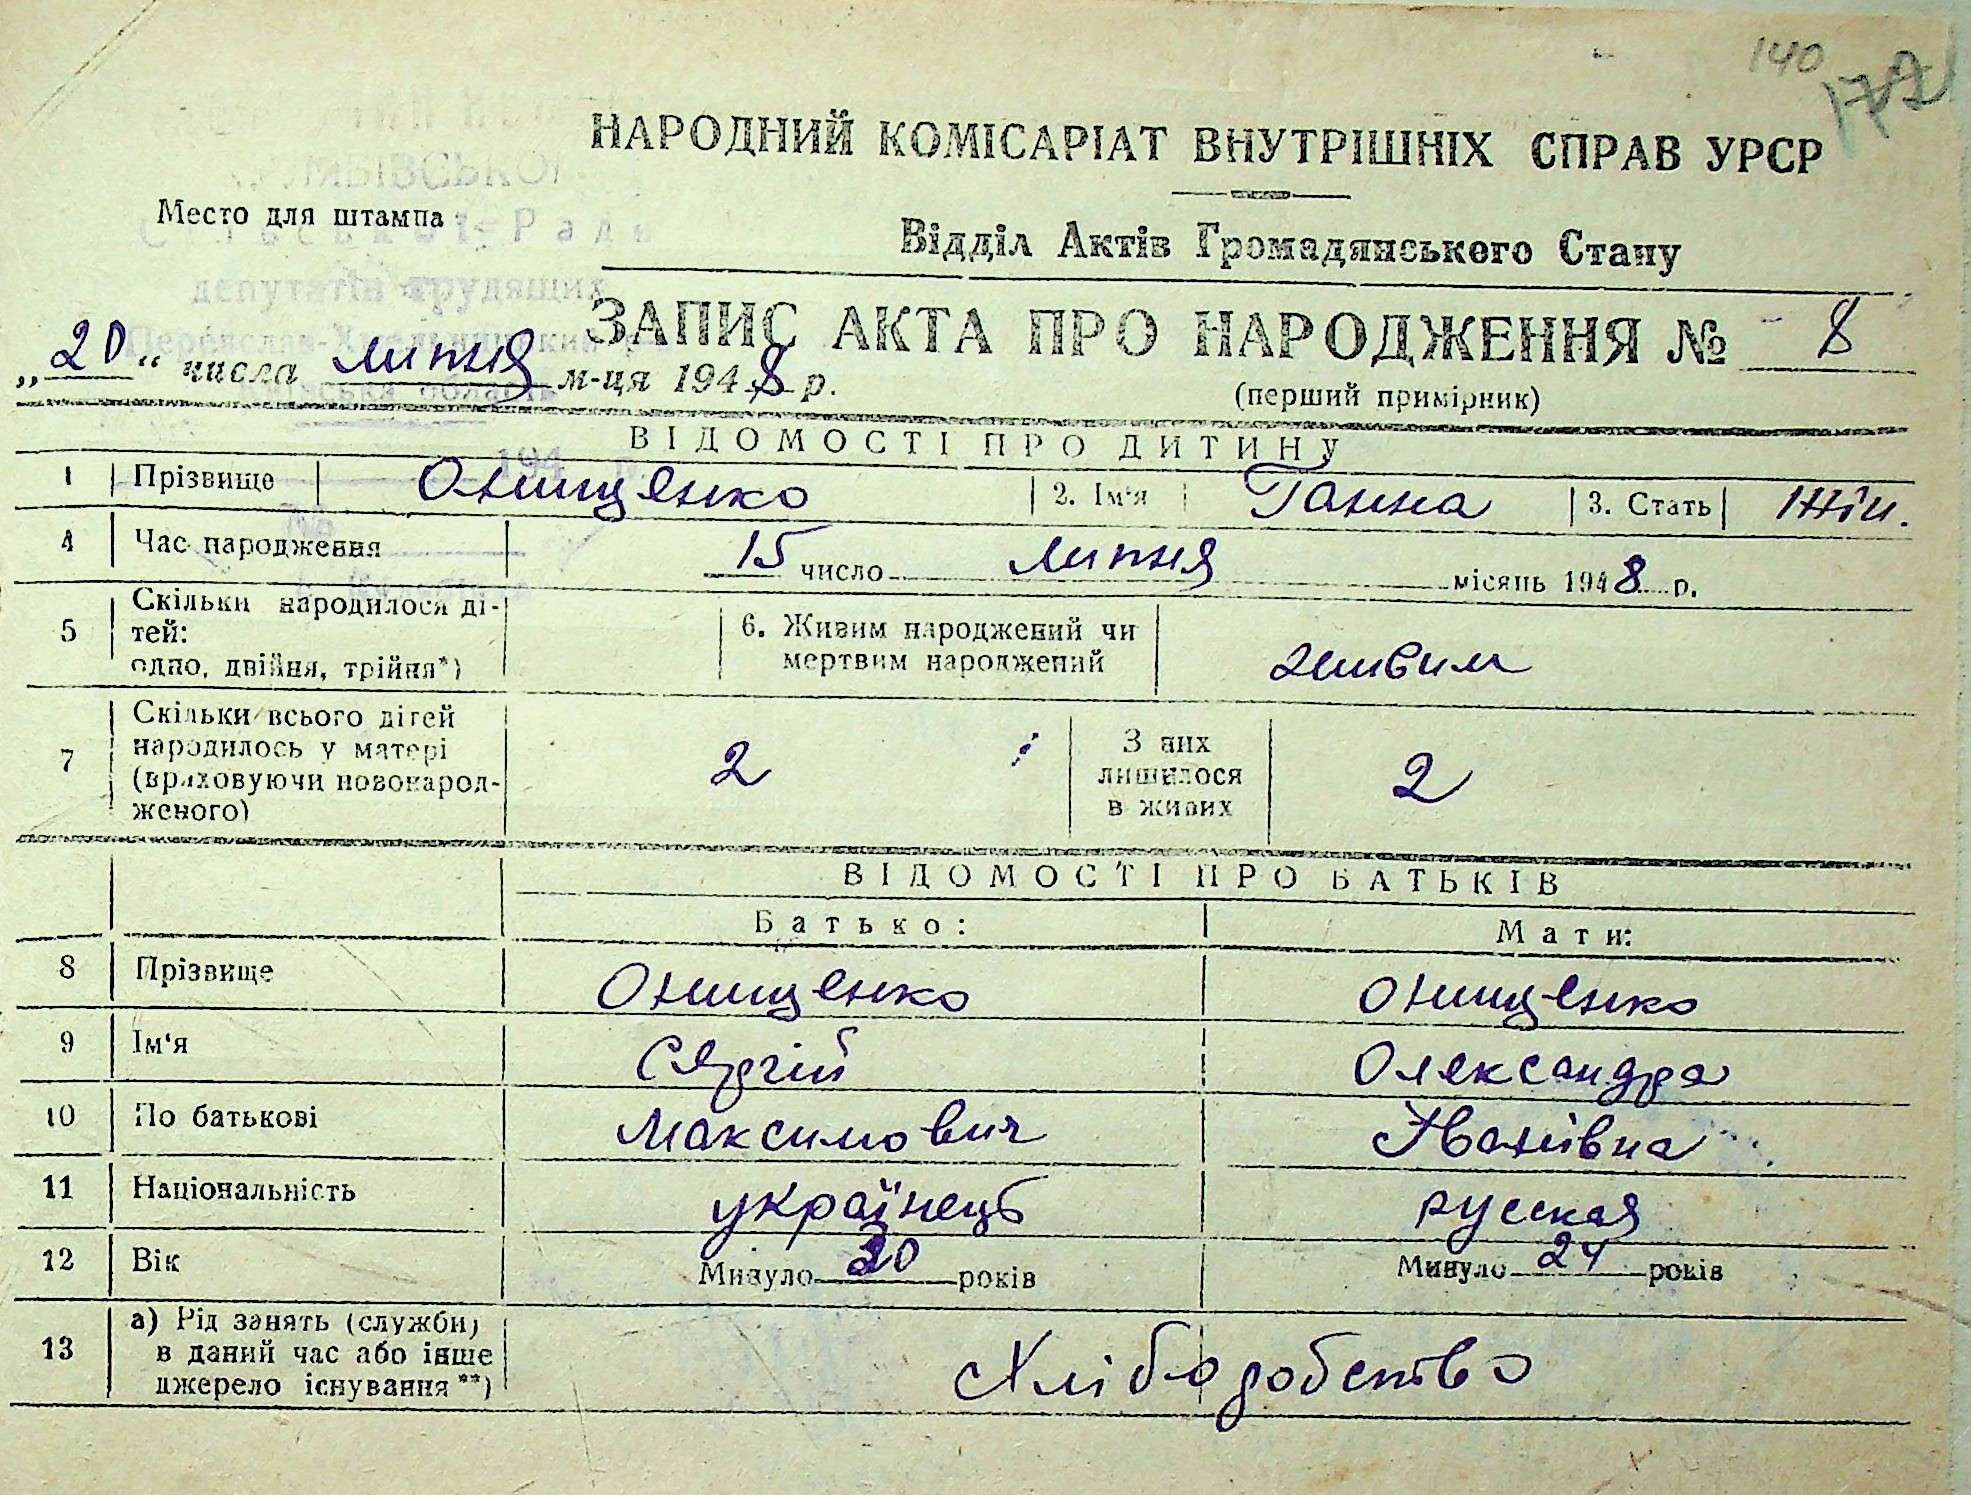 140
172
НАРОДНИЙ КОМІСАРІАТ ВНУТРІШНІХ СПРАВ УРСР
Место для штампа
Відділ Актів Громадянського Стану
депутатів трудящих
ЗАПИС АКТА ПРО НАРОДЖЕННЯ № 8
„20“ числа липня м-ця 1948 р.
(перший примірник)
ВІДОМОСТІ ПРО ДИТИНУ
1 Прізвище Онищенко 2. Ім‘я Ганна 3. Стать жін.
4 Час народження 15 число липня місяць 1948 р.
5 Скільки народилося ді-
тей:
одно, двійня, трійня*)
6. Живим народжений чи
мертвим народжений живим
7 Скільки всього дітей
народилось у матері
(враховуючи новонарод-
женого) 2
З них
лишилося
в живих 2
ВІДОМОСТІ ПРО БАТЬКІВ
Батько: Мати:
8 Прізвище Онищенко Онищенко
9 Ім‘я Сергій Олександра
10 По батькові Максимович Іванівна
11 Національність українець русская
12 Вік Минуло 20 років Минуло 24 років
13 а) Рід занять (служби)
в даний час або інше
джерело існування**) Хлібодобство